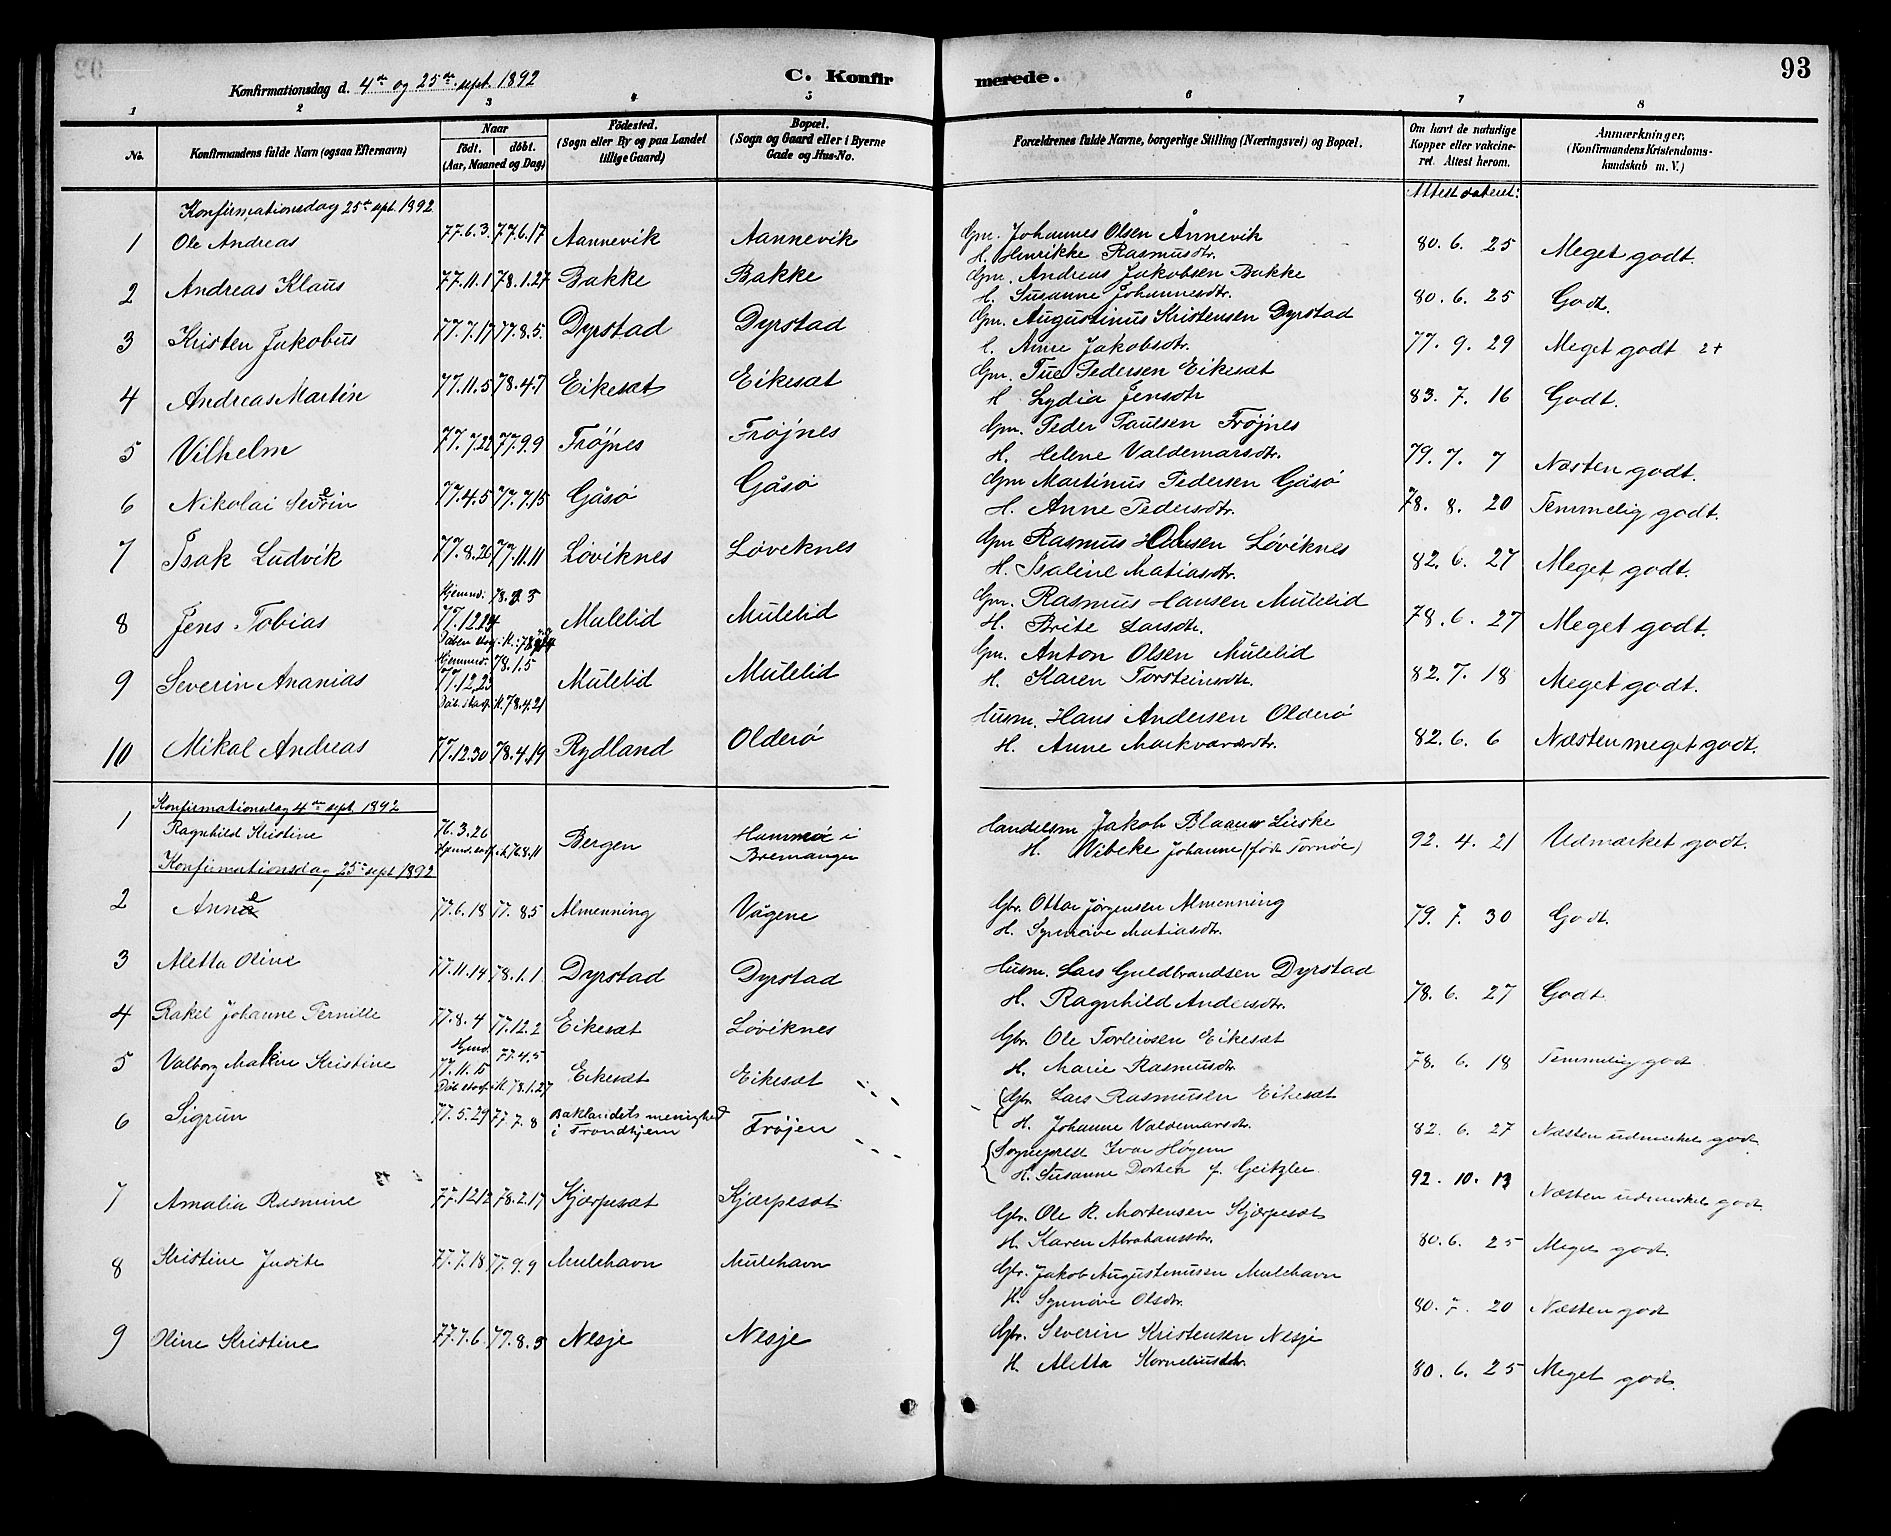 93
Konfirmationsdag d. 4de og 25de sept. 1892
C. Konfirmerede.
1 2 3 4 5 6 7 8
No. Konfirmandens fulde Navn (ogsaa Efternavn) Naar födt. döbt. (Aar, Maaned og Dag) Födested. (Sogn eller By og paa Landet tillige Gaard) Bopæl. (Sogn og Gaard eller i Byerne Gade og Hus-No. Forældrenes fulde Navne, borgerlige Stilling (Næringsvei) og Bopæl. Om havt de naturlige Kopper eller vakcineret. Attest herom. Anmærkninger, (Konfirmandens Kristendomskundskab m. V.)
Attest dateret:
Konfirmationsdag 25de sept. 1892
1 Ole Andreas 77.6.3. 77.6.17 Aannevik Aannevik Gm. Johannes Olsen Ånnevik
H. Henrikke Rasmusdtr. 80. 6. 25 Meget godt.
2 Andreas Klaus 77.11.1 78.1.27 Bakke Bakke Gm. Andreas Jakobsen Bakke
H. Susanne Johannesdtr. 80. 6. 25 Godt.
3 Kristen Jakobus 77.7.17 77.8.5. Dyrstad Dyrstad Gm. Augustinus Kristensen Dyrstad
Anne Jakobsdtr. 77. 9. 29 Meget godt 2+
4 Andreas Martin 77.11.5 78.4.7 Eikesæt Eikesæt Gm. Tue Pedersen Eikesæt
H. Lydia Jensdtr 83. 7. 16 Godt.
5 Vilhelm 77.7.22 77.9.9 Frøjnes Frøjnes Gm. Peder Paulsen Frøjnes
H. Helene Valdemarsdtr. 79. 7. 7 Næsten godt.
6 Nikolai Severin 77.4.5 77.7.15 Gåsø Gåsø Gm Martinus Pedersen Gåsø
H. Anne Pedersdtr. 78. 8. 20 Temmelig godt.
7 Isak Ludvik 77.8.26 77.11.11 Løviknes Løveknes Gm Rasmus Olsen Løviknes
H. Isaline Matiasdtr. 82. 6. 27 Meget godt.
8 Jens Tobias 77.12.24 Hjemmed. Mulelid Mulelid Gm. Rasmus Hansen Mulelid
H. Brite Larsdtr. 78. 6. 27 Meget godt.
9 Severin Ananias Hjemmed. 78.1.5 77.12.25 78.4.21 Mulelid Mulelid Gm. Anton Olsen Mulelid
H. Karen Torsteinsdtr. 82. 7. 18 Meget godt.
10 Mikal Andreas 77.12.30 78.4.19 Rydland Olderø Husm. Hans Andersen Olderø
H. Anne Markvardsdtr. 82. 6. 6 Næsten meget godt.
Konfirmationsdag 4de sept. 1892
1 Ragnhild Kristine 76.3.26 76.8.11 Bergen Hammøe i Bremanger Handelsm Jakob Blaauw Liiske
H. Wibeke Johanne (født Tornøe) 92. 4. 21 Udmærket godt.
Konfirmationsdag 25de sept 1892
2 Anne 77.6.18 77.8.5 Almenning Vågene Gbr. Ottar Jørgensen Almenning
H. Synnøve Matiasdtr. 79. 7. 30 Godt.
3 Aletta Oline 77.11.14 78.1.1 Dyrstad Dyrstad Husm. Lars Guldbrandsen Dyrstad
H. Ragnhild Andersdtr. 78. 6. 27 Godt
4 Rakel Johanne Pernille 77.8.4 77.12.2 Eikesæt Løviknes Gbr. Ole Torleivsen Eikesæt
H. Marie Rasmusdtr. 78. 6. 18 Temmelig godt
5 Valborg Kristine 77.11.15 78.1.27 Eikesæt Eikesæt Gbr. Lars Rasmusen Eikesæt
H. Johanne Valdemarsdtr. 82. 6. 27 Næsten udmerket godt
6 Sigrun 77.5.29 77.7.8 Baklandets menighed i Trondhjem Frøjen Sogneprest Ivar Høyem
H. Susanne Dortea f. Geitzler 92. 10. 13 Næsten udmerket godt
7 Amalia Rasmine 77.12.12 78.2.17 Kjærpesæt Kjærpesæt Gbr. Ole R. Mortensen Kjærpesæt
H. Karen Abrahamsdtr. 80. 6. 25 Meget godt.
8 Kristine Judite 77.7.18 77.9.9 Mulehavn Mulehavn Gbr. Jakob Augustinusen Mulehavn
H. Synnøve Olsdtr. 80. 7. 20 Næsten godt
9 Oline Kristine 77.7.6. 77.8.5 Nesje Nesje Gbr. Severin Kristensen Nesje
H. Aletta Korneliusdtr. 80. 6. 25 Meget godt.